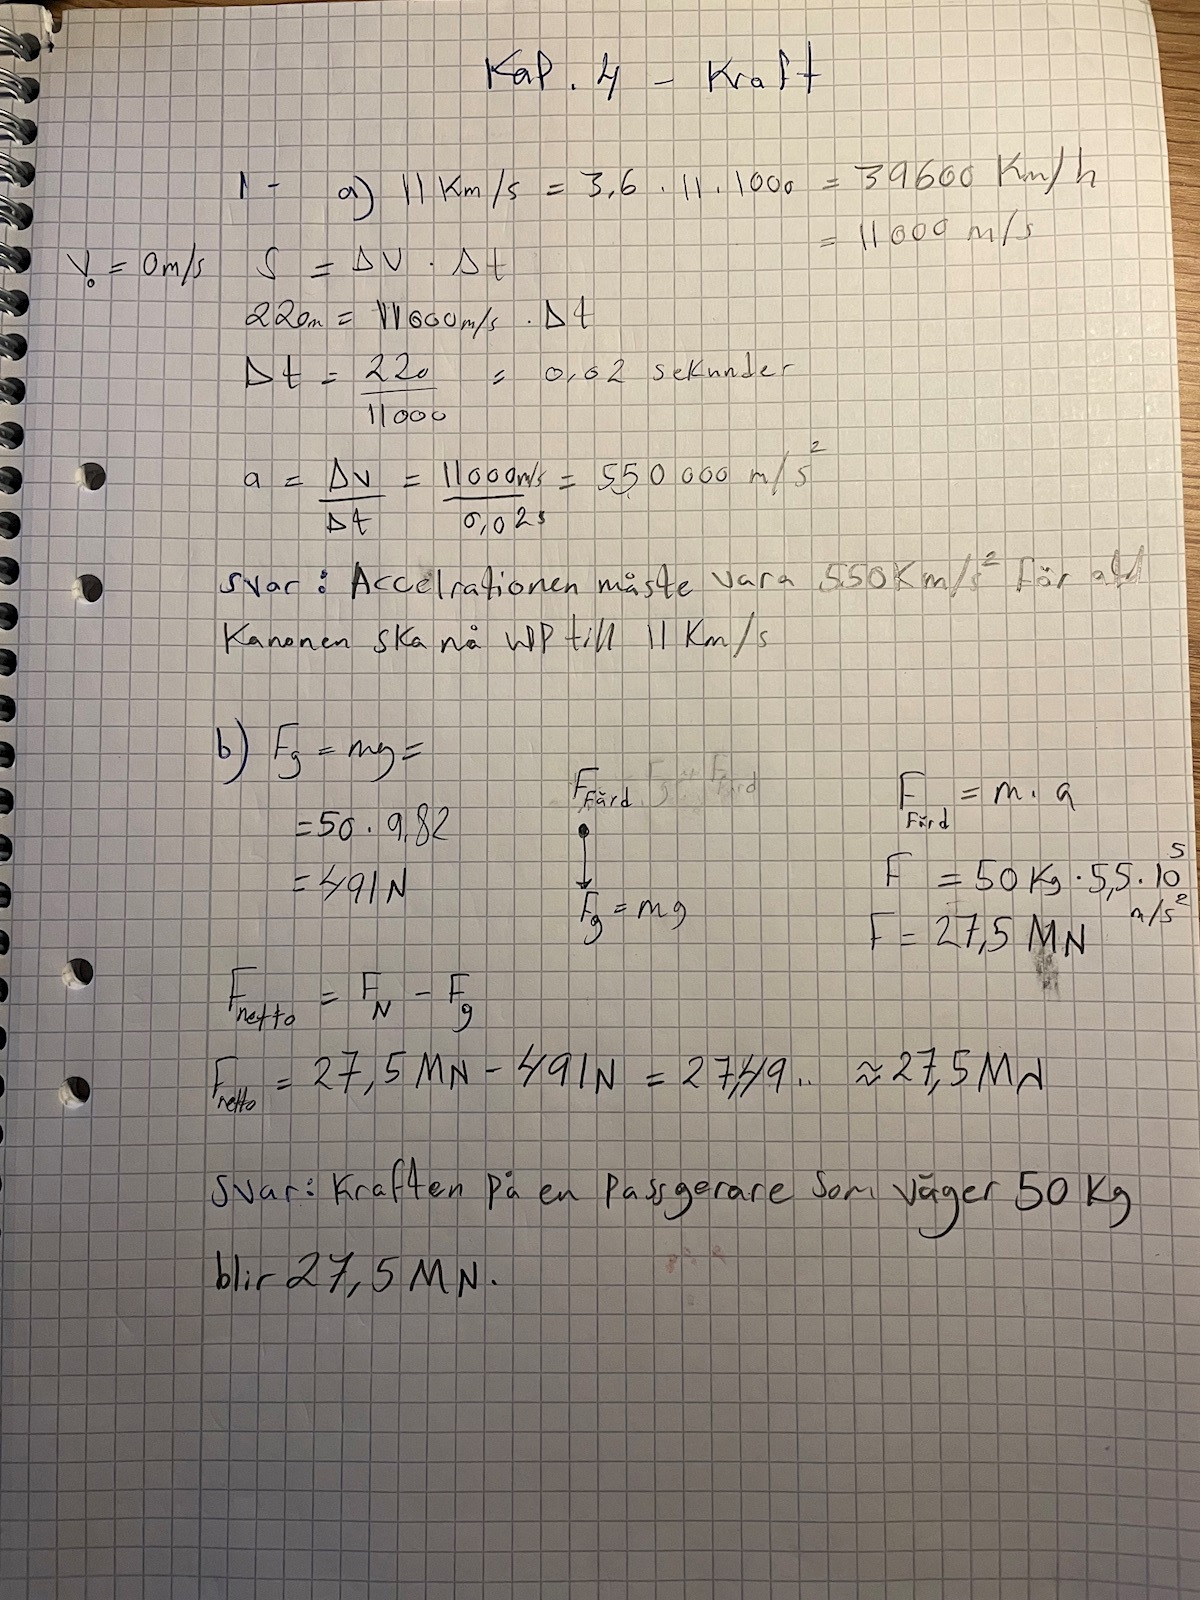 Kap. 4 - Kraft
1- a) 11 Km/s = 3,6 · 11 · 1000 = 39600 Km/h
= 11000 m/s
V₀ = 0m/s S = ΔV · Δt
220m = 11000m/s · Δt
Δt = 220/11000 = 0,02 sekunder
a = ΔV/Δt = 11000m/s/0,02s = 550 000 m/s²
Svar: Accelrationen måste vara 550Km/s² för att
Kanonen ska nå UP till 11 Km/s
b) Fg = mg =
= 50 · 9,82
= 491N
F Färd
Fg = mg
F Färd = m · a
F = 50 Kg · 5,5 · 10⁵ m/s²
F = 27,5 MN
F netto = F N - F g
F netto = 27,5 MN - 491N = 27,49.. ≈ 27,5 MN
Svar: Kraften på en Passgerare Som väger 50 Kg
blir 27,5 MN.